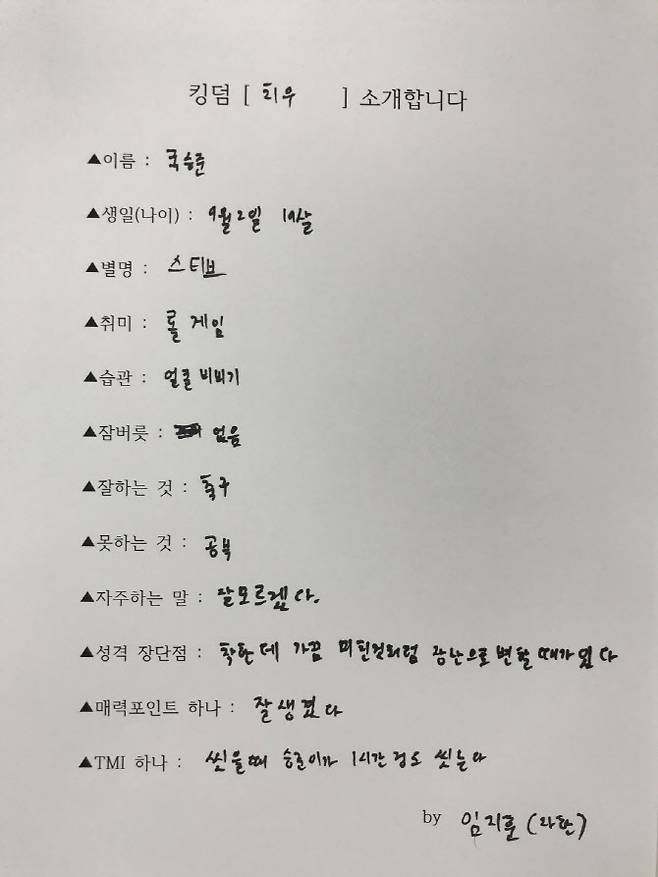 킹덤 [ 치우 ] 소개합니다
▲이름 : 국승준
▲생일(나이) : 9월2일 19살
▲별명 : 스티브
▲취미 : 롤 게임
▲습관 : 얼굴 비비기
▲잠버릇 : 없음
▲잘하는 것 : 축구
▲못하는 것 : 공부
▲자주하는 말 : 잘모르겠다.
▲성격 장단점 : 착한데 가끔 미친것처럼 장난으로 변할때가있다
▲매력포인트 하나 : 잘생겼다
▲TMI 하나 : 씻을때 승준이가 1시간정도 씻는다
by 임지훈(라한)